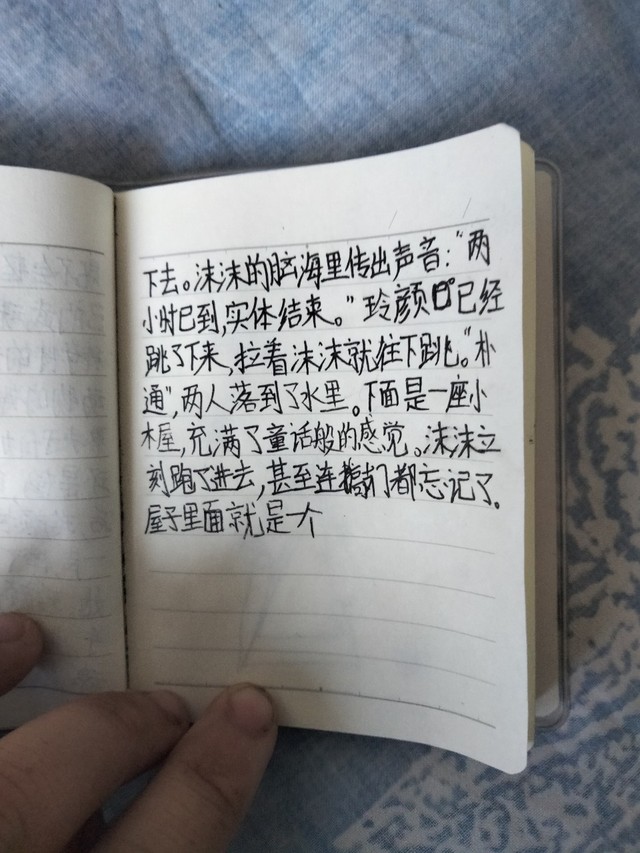 下去。沫沫的脑海里传出声音：“两
小时已到,实体结束。”玲颜已经
跳了下来,拉着沫沫就往下跳。“朴
通”,两人落到了水里。下面是一座小
木屋,充满了童话般的感觉。沫沫立
刻跑了进去,甚至连门都忘记了。
屋子里面就是个